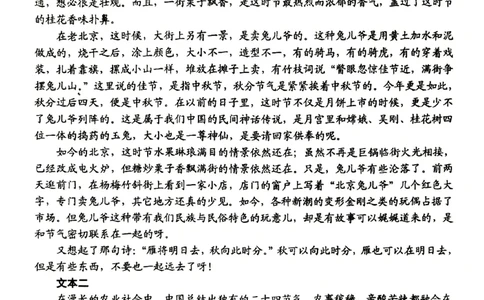 道，想必很是壮观。而且，一街栗子飘香，是这时节最热烈而浓郁的香气，盖过了这时节
的桂花香味扑鼻。
在老北京，这时候，大街上另有一景，是卖兔儿爷的。这种兔儿爷是用黄土加水和泥
做成的，烧干之后，涂上颜色，大小不一，造型不一，有的骑马，有的骑虎，有的穿着戏
装，扎着靠旗，摆成小山一样，堆放在摊子上卖，有竹枝词说“瞥眼忽惊佳节近，满街争
摆兔儿山。”这里说的佳节，是指中秋节，秋分节气是紧紧挨着中秋节的。今年更是如此，
秋分过后四天，便是中秋节。在以前的日子里，这时节不仅是月饼上市的时候，更是少不
了兔儿爷列阵的。这是属于我们中国的民间神话传说，是月宫里和嫦娥、吴刚、桂花树四
位一体的捣药的玉兔，大小也是一尊神仙，是要请回家供奉的呢。
如今的北京，这时节水果琳琅满目的情景依然还在；虽然不再是巨锅临街火光相接，
已经改成电火炉，但糖炒栗子香飘满街的情景依然还在。只是，兔儿爷有些沦落了。前两
天逛前门，在杨梅竹斜街上看到一家小店，店门的窗户上写着“北京兔儿爷”几个红色大
字，专门卖兔儿爷，其它地方还真的少见。如今，各种新潮的变形金刚之类的玩偶占据了
市场。但兔儿爷这种带有我们民族与民俗特色的玩意儿，却是有故事可以娓娓道来的，是
和节气密切联系在一起的呀。
又想起了那句诗：“雁将明日去，秋向此时分。”秋可以向此时分，雁也可以在明日去，
但是有些东西，不要也一起远去了呀！
文本二
在漫长的农业社会中，中国总结出独有的二十四节气，农事